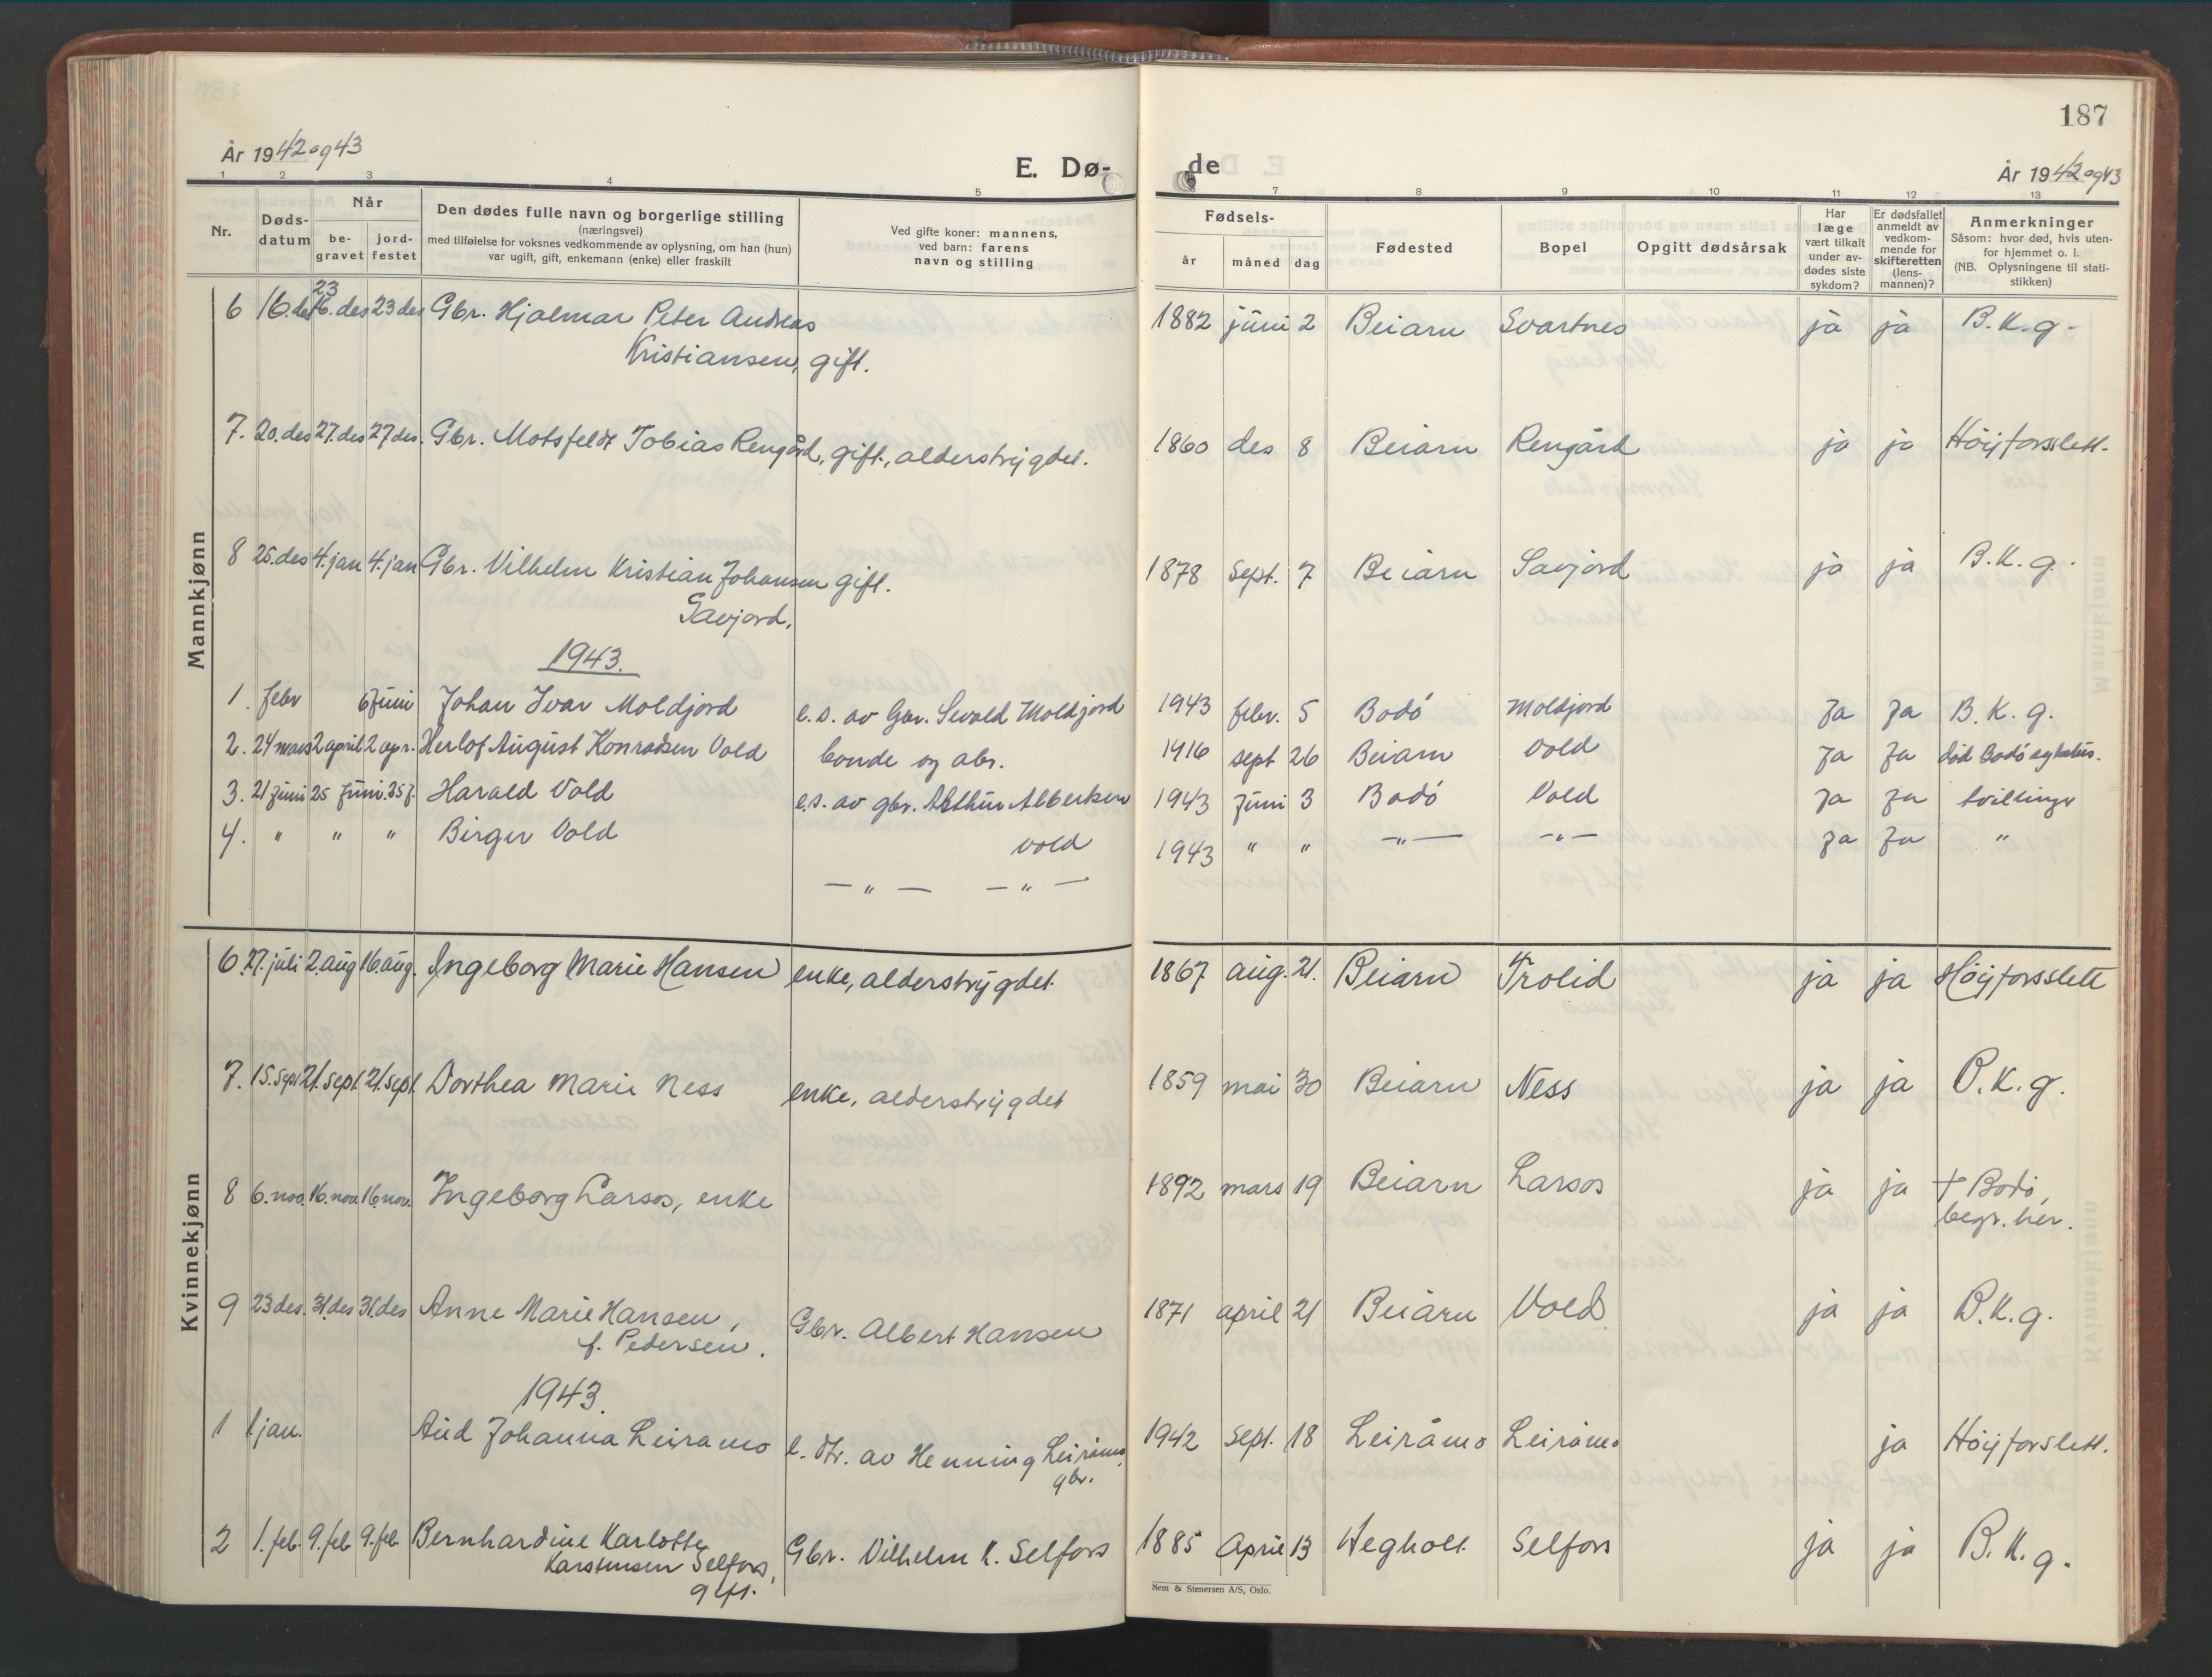 187
År 1942 og 43
E. Dø-
de
År 1942 og 43
1 2 3 4 5 6 7 8 9 10 11 12 13
Nr.
Døds-
datum
Når
be-
gravet
jord-
festet
Den dødes fulle navn og borgerlige stilling
(næringsvei)
med tilføielse for voksnes vedkommende av oplysning, om han (hun)
var ugift, gift, enkemann (enke) eller fraskilt
Ved gifte koner: mannens,
ved barn: farens
navn og stilling
Fødsels-
år måned dag
Fødested
Bopel
Opgitt dødsårsak
Har
læge
vært tilkalt
under av-
dødes siste
sykdom?
Er dødsfallet
anmeldt av
vedkom-
mende for
skifteretten
(lens-
mannen)?
Anmerkninger
Såsom: hvor død, hvis uten-
for hjemmet o. l.
(NB. Oplysningene til stati-
stikken)
Mannkjønn
23
6 16. des 16. des 23 des Gbr. Hjalmar Peter Andreas 1882 juni 2 Beiarn Svartnes ja ja B.K.g.
Kristiansen, gift.
7. 20. des 27. des 27 des. Gbr. Motsfeldt Tobias Rengård, gift, alderstrygdet. 1860 des 8 Beiarn Rengård ja ja Höyforsslett.
8 25. des 4. jan 4. jan Gbr. Vilhelm Kristian Johansen gift. 1878 Sept. 7 Beiarn Savjord ja ja B.K.g.
Savjord.
1943.
1. febr 6 Juni Johan Ivar Moldjord e.s. av Gbr. Sevald Moldjord 1943 febr. 5 Bodö Moldjord Ja Ja B.K.g.
2. 24 mars 2 april 2 apr. Herlof August Konradsen Vold bonde og abr. 1916 sept 26 Beiarn Vold Ja Ja död Bodö sykehus.
3. 21 Juni 25 Juni. 25 J. Harald Vold e.s. av gbr. Arthur Albertsen 1943 Juni 3 Bodö Vold Ja Ja tvillinger
4. " " " Birger Vold Vold 1943 " " —"— —"— Ja Ja "
—"— —"—
Kvinnekjønn
6. 27. juli 2. aug 16. aug. Ingeborg Marie Hansen enke, alderstrygdet. 1867 aug. 21. Beiarn Trolid ja ja Höyforsslett
7. 15. sept 21. sept. 21. sept. Dorthea Marie Ness enke, alderstrygdet 1859 mai 30 Beiarn Ness ja ja B.K.g.
8 6. nov. 16. nov. 16. nov. Ingeborg Larsos, enke 1892 mars 19 Beiarn Larsos ja ja † Bodö,
begr. her.
9 23 des. 31. des 31. des Anne Marie Hansen, Gbr. Albert Hansen 1871 april 21 Beiarn Vold ja ja B.K.g.
f. Pedersen.
1943.
1 1. jan. Aud Johanna Leiramo e. dtr. av Henning Leiråmo, 1942 Sept. 18 Leiråmo Leiråmo ja Höyforslett.
gbr.
2 1. feb. 9. feb 9. feb. Bernhardine Karlotte Gbr. Vilhelm K. Selfors 1885 April 13 Hegholt Selfors ja ja B.K.g.
Karstensen Selfors,
gift.
Sem & Stenersen A/S, Oslo.